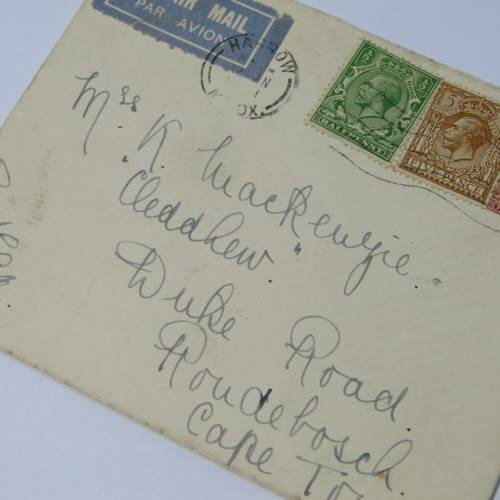 AIR MAIL
PAR AVION
HARROW
½ ½
HALFPENNY
5
FIVEPENCE
Mrs K. Mackenzie.
"Cleddhew."
Duke Road.
Rondebosch.
Cape